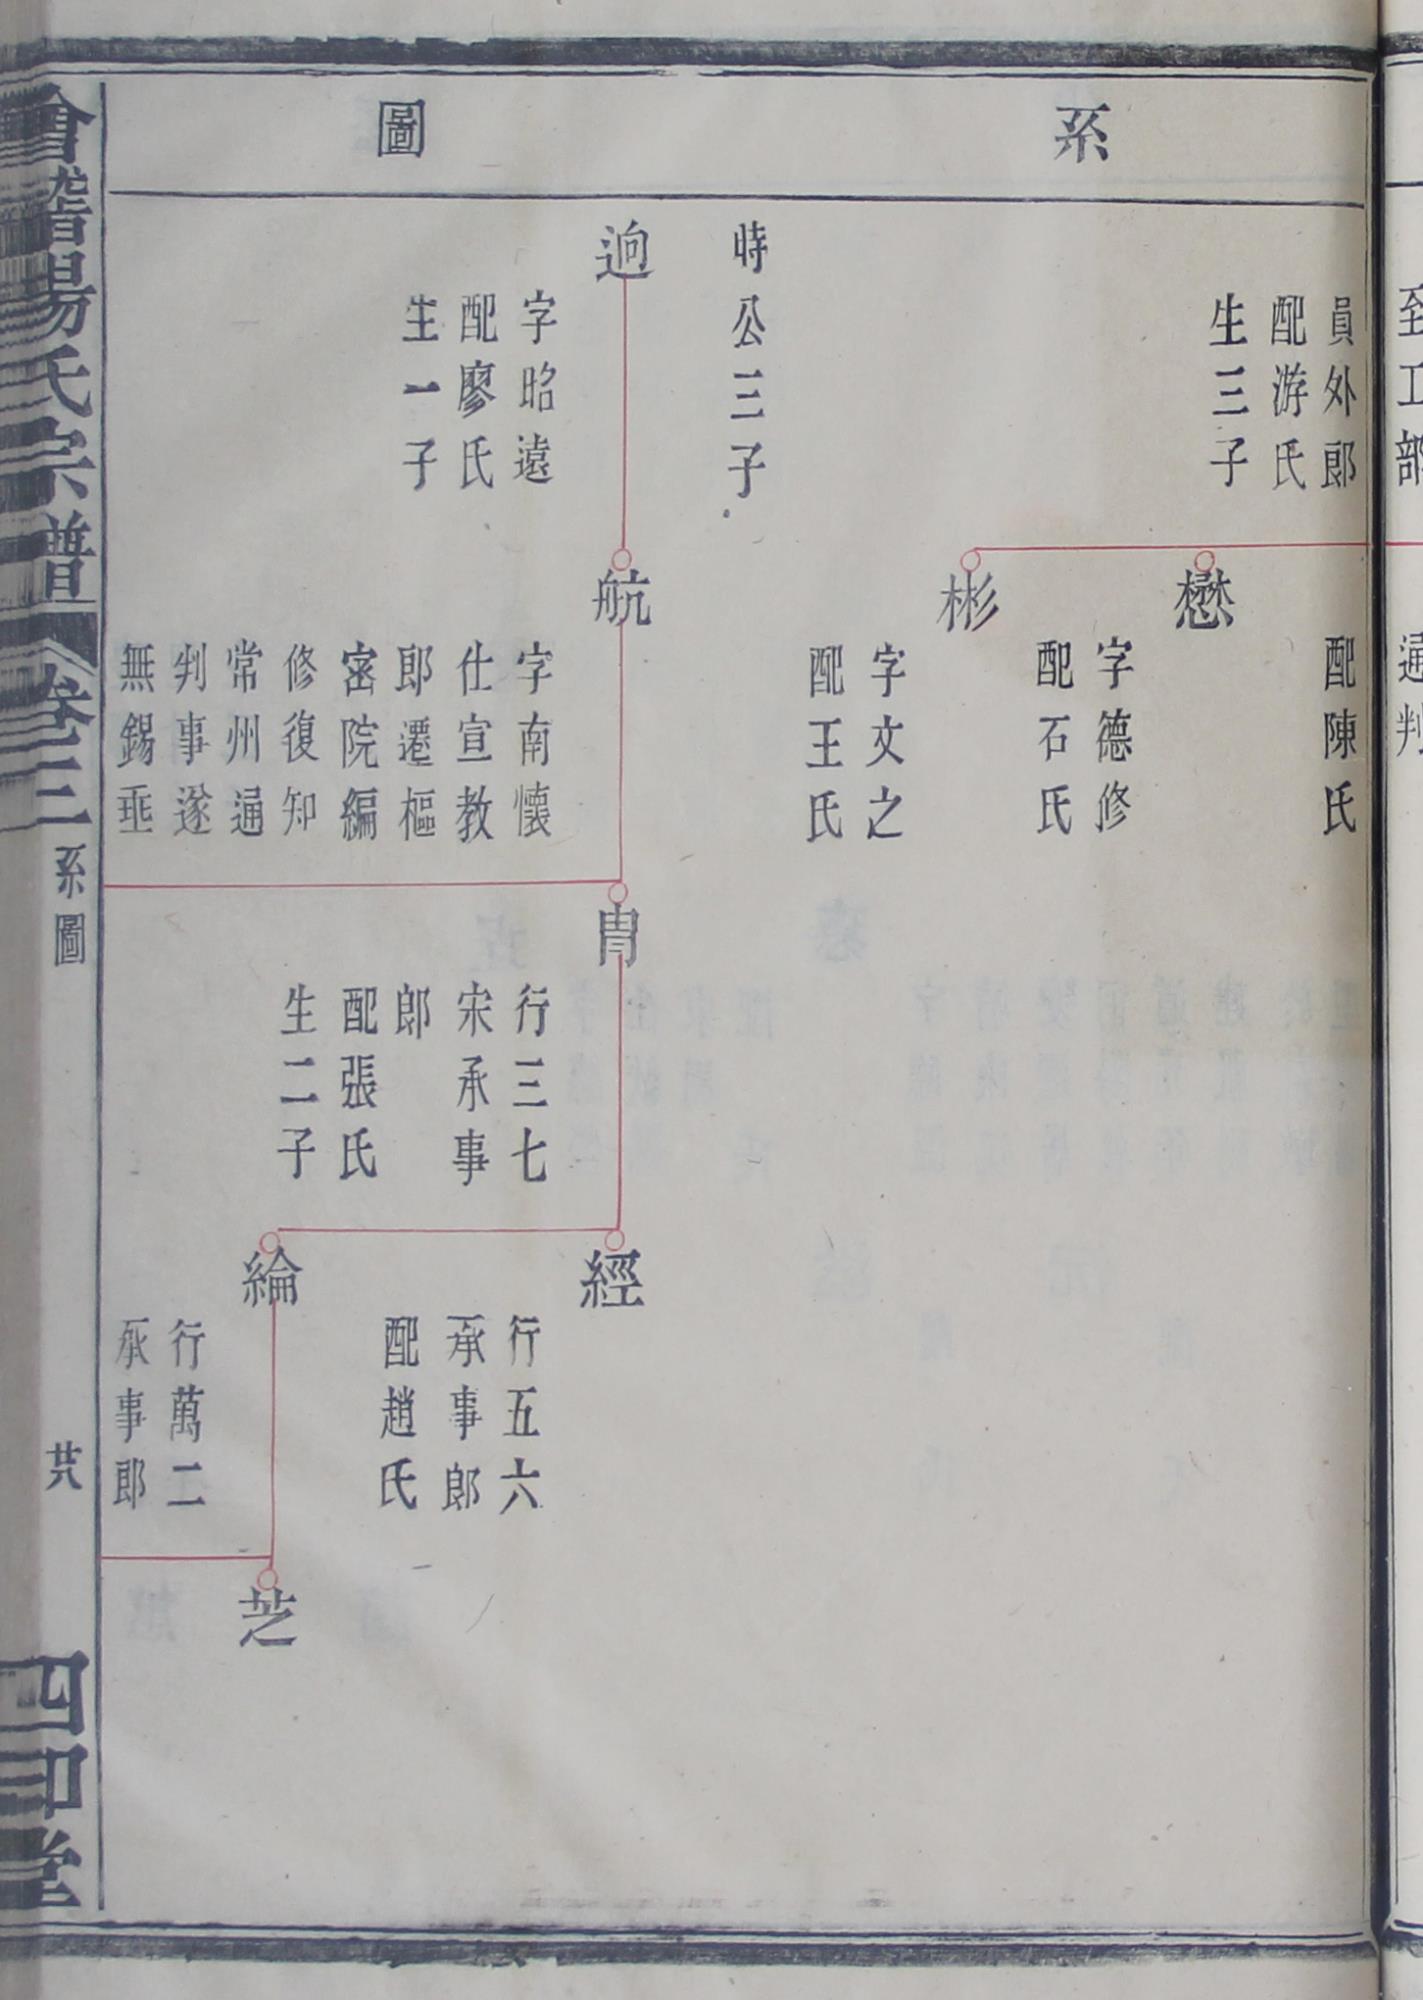 系圖
至工部
通判
員外郎
配游氏
生三子
配陳氏
懋
字德修
配石氏
彬
字文之
配王氏
時公三子
逈
字昭遠
配廖氏
生一子
航
字南懷
仕宣教
郎遷樞
密院編
修復知
常州通
判事遂
無錫垂
冑
行三七
宋承事
郎
配張氏
生二子
經
行五六
承事郎
配趙氏
綸
行萬二
承事郎
芝
會稽楊氏宗譜
卷三
系圖
廿八
四知堂